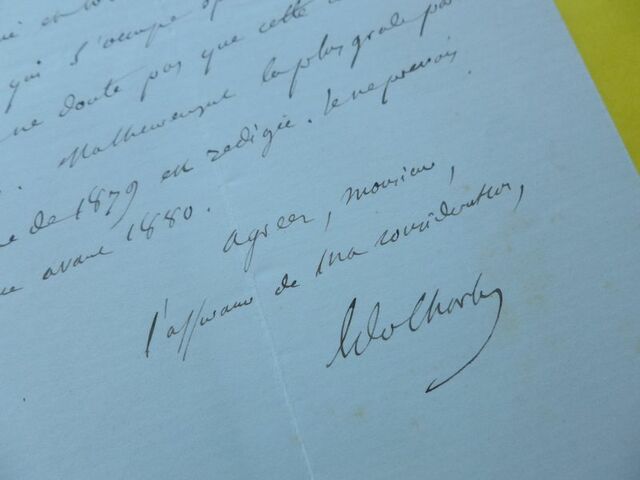 qui s'occupe
ne doute pas que cette
Malheureusement la plus grande
de 1879 est rédigée. Je ne prévois
avant 1880.
agréez, monsieur,
l'assurance de ma considération,